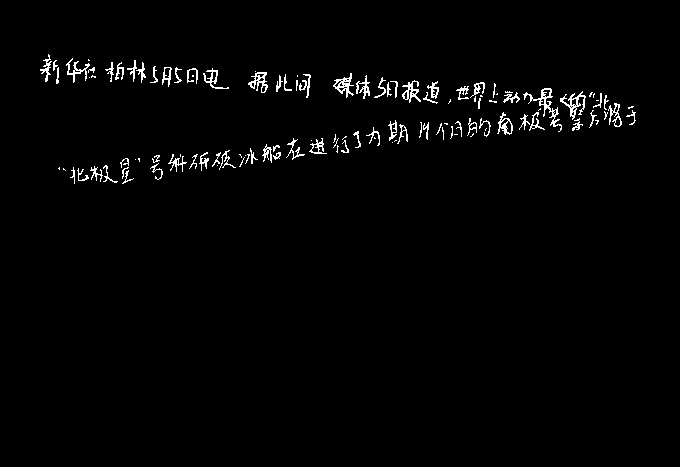 新华社柏林5月5日电 据此间 媒体5日报道,世界上动力最大的“北
“北极星”号科研破冰船在进行了为期14个月的南极考察后将于